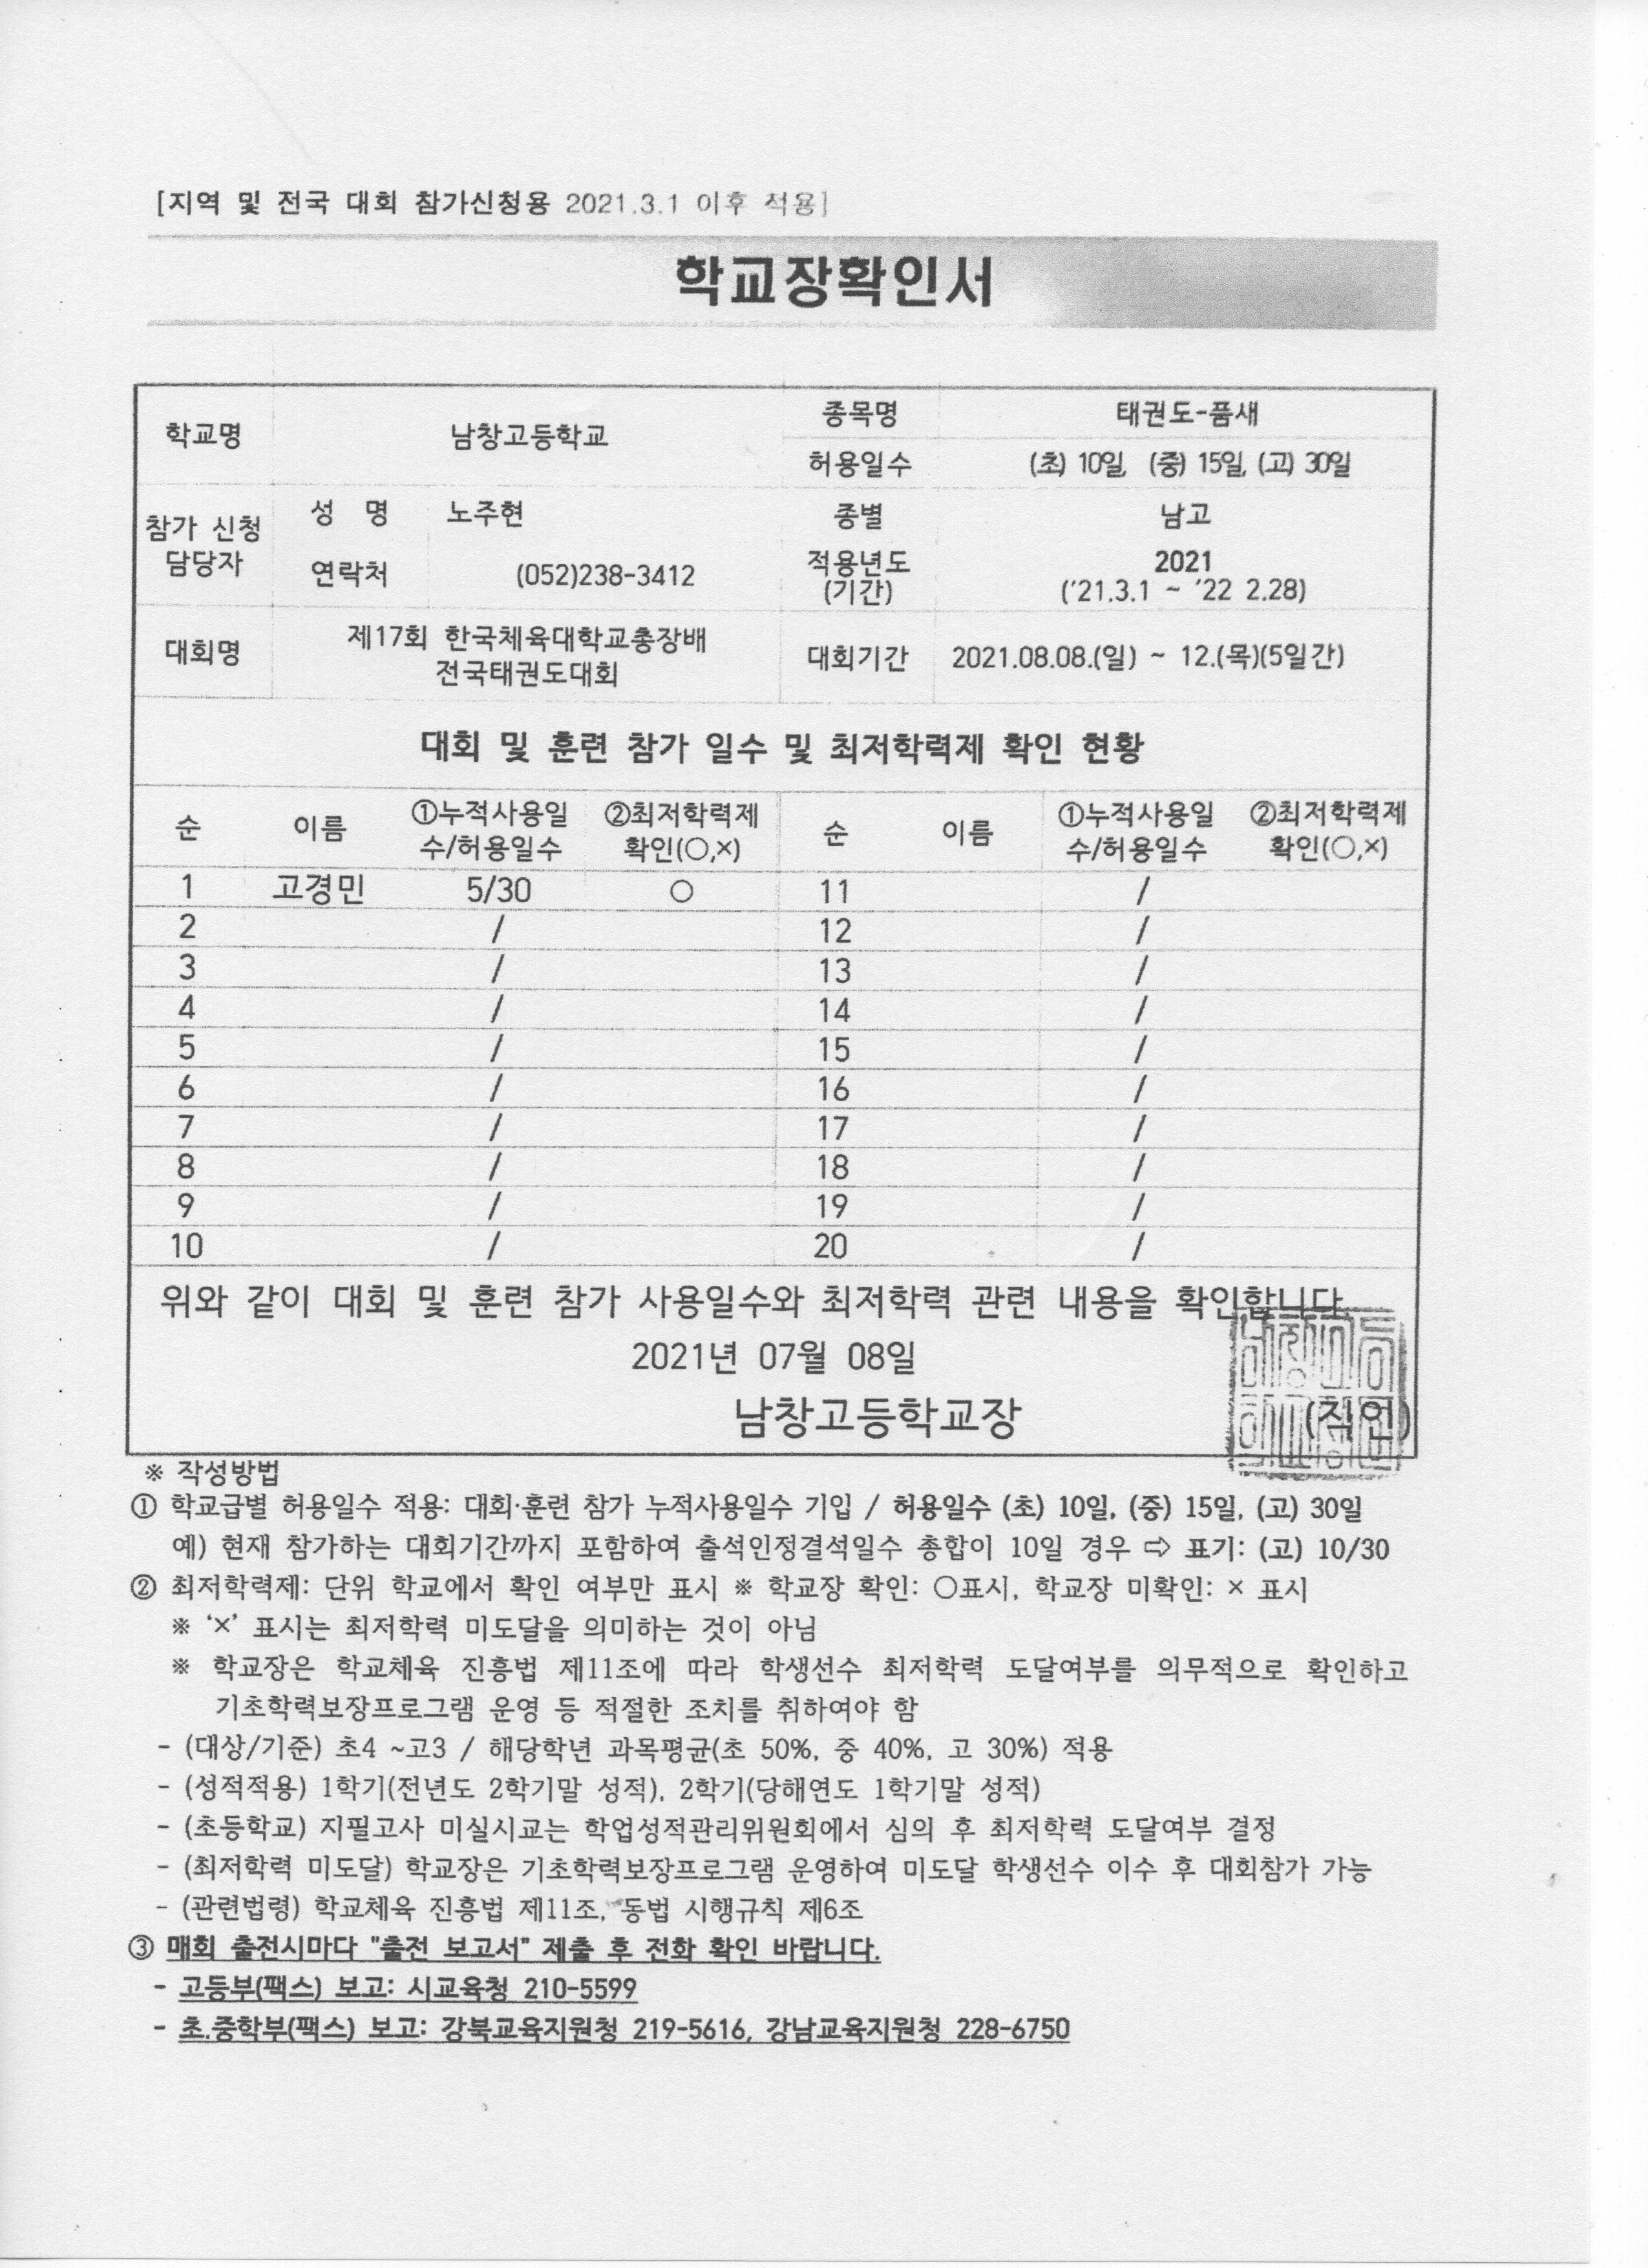 [지역 및 전국 대회 참가신청용 2021.3.1 이후 적용]
학교장확인서
학교명 남창고등학교 종목명 태권도-품새
허용일수 (초) 10일, (중) 15일, (고) 30일
참가 신청 담당자 성 명 노주현 종별 남고
연락처 (052)238-3412 적용년도 (기간) 2021 ('21.3.1 ~ '22 2.28)
대회명 제17회 한국체육대학교총장배 전국태권도대회 대회기간 2021.08.08.(일) ~ 12.(목)(5일간)
대회 및 훈련 참가 일수 및 최저학력제 확인 현황
순 이름 ①누적사용일수/허용일수 ②최저학력제 확인(○,×) 순 이름 ①누적사용일수/허용일수 ②최저학력제 확인(○,×)
1 고경민 5/30 ○ 11 /
2 / 12 /
3 / 13 /
4 / 14 /
5 / 15 /
6 / 16 /
7 / 17 /
8 / 18 /
9 / 19 /
10 / 20 /
위와 같이 대회 및 훈련 참가 사용일수와 최저학력 관련 내용을 확인합니다.
2021년 07월 08일
남창고등학교장 (직인)
※ 작성방법
① 학교급별 허용일수 적용: 대회·훈련 참가 누적사용일수 기입 / 허용일수 (초) 10일, (중) 15일, (고) 30일
예) 현재 참가하는 대회기간까지 포함하여 출석인정결석일수 총합이 10일 경우 ⇨ 표기: (고) 10/30
② 최저학력제: 단위 학교에서 확인 여부만 표시 ※ 학교장 확인: ○표시, 학교장 미확인: × 표시
※ '×' 표시는 최저학력 미도달을 의미하는 것이 아님
※ 학교장은 학교체육 진흥법 제11조에 따라 학생선수 최저학력 도달여부를 의무적으로 확인하고
기초학력보장프로그램 운영 등 적절한 조치를 취하여야 함
- (대상/기준) 초4 ~고3 / 해당학년 과목평균(초 50%, 중 40%, 고 30%) 적용
- (성적적용) 1학기(전년도 2학기말 성적), 2학기(당해연도 1학기말 성적)
- (초등학교) 지필고사 미실시교는 학업성적관리위원회에서 심의 후 최저학력 도달여부 결정
- (최저학력 미도달) 학교장은 기초학력보장프로그램 운영하여 미도달 학생선수 이수 후 대회참가 가능
- (관련법령) 학교체육 진흥법 제11조, 동법 시행규칙 제6조
③ 매회 출전시마다 "출전 보고서" 제출 후 전화 확인 바랍니다.
- 고등부(팩스) 보고: 시교육청 210-5599
- 초.중학부(팩스) 보고: 강북교육지원청 219-5616, 강남교육지원청 228-6750